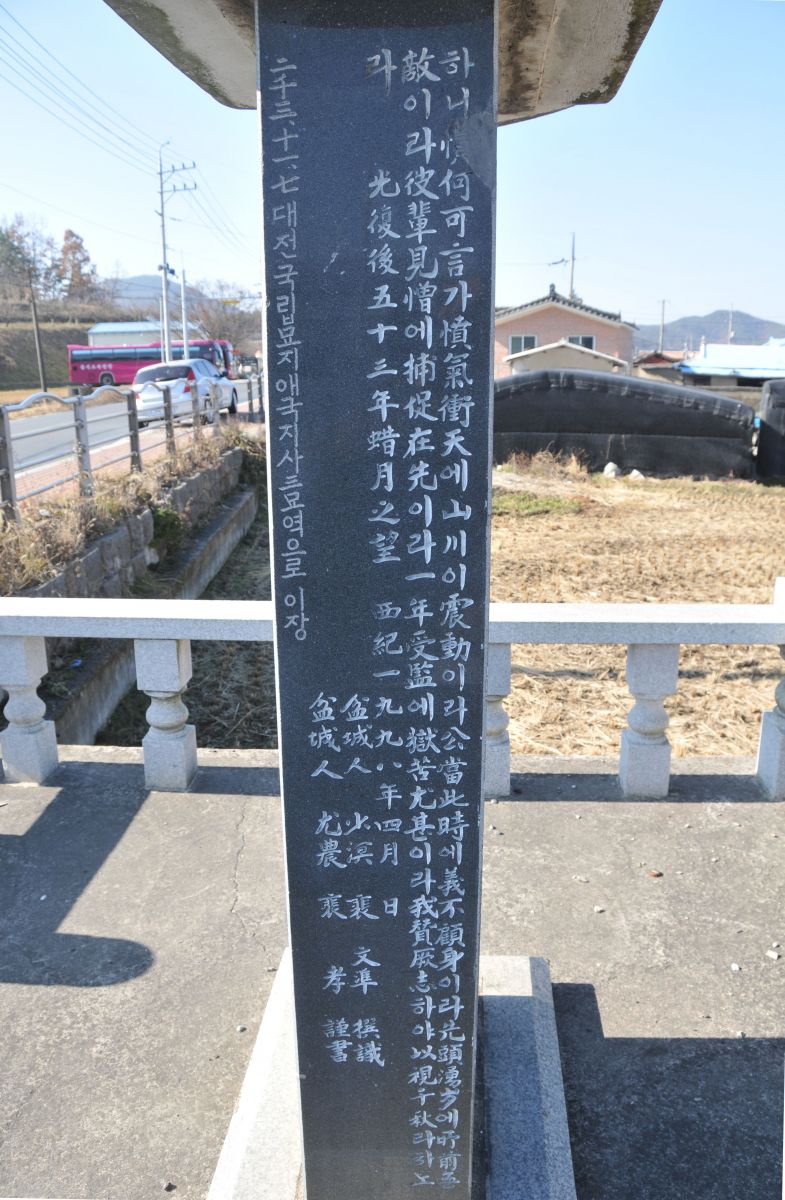 하니 憤何可言가 憤氣衝天에 山川이 震動이라 公當此時에 義不顧身이라 先頭湧方에 所前無
敵이라 彼輩見憎에 捕促在先이라 一年受監에 獄苦尤甚이라 我贊厥志하야 以視千秋라하노
라 光復後五十三年蜡月之望 西紀一九九八年四月 日
盆城人 裵文準 撰識
盆城人 尤農 裵孝 謹書
二千三、十一、七 대전국립묘지애국지사묘역으로 이장